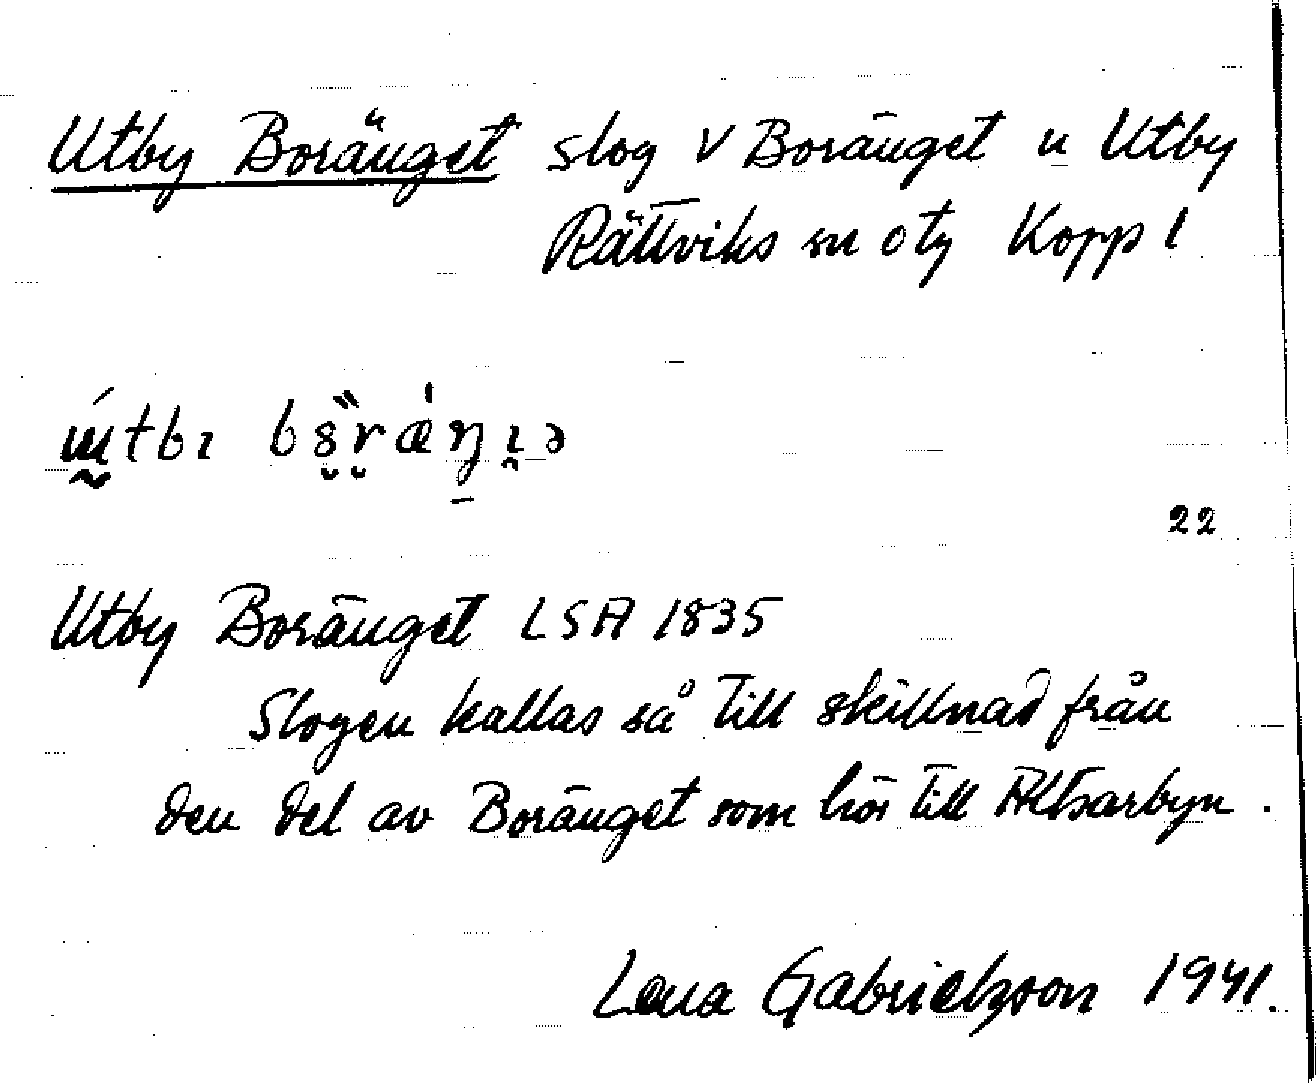 Utby Boränget slog V Boränget u Utby
Rättviks sn o tg Kopp l
ɯ́tbɩ bȣ̈rǽŋɩə
22
Utby Boränget LSA 1835
Slogen kallas så till skillnad från
den del av Boränget som hör till Altsarbyn.
Lena Gabrielsson 1941.